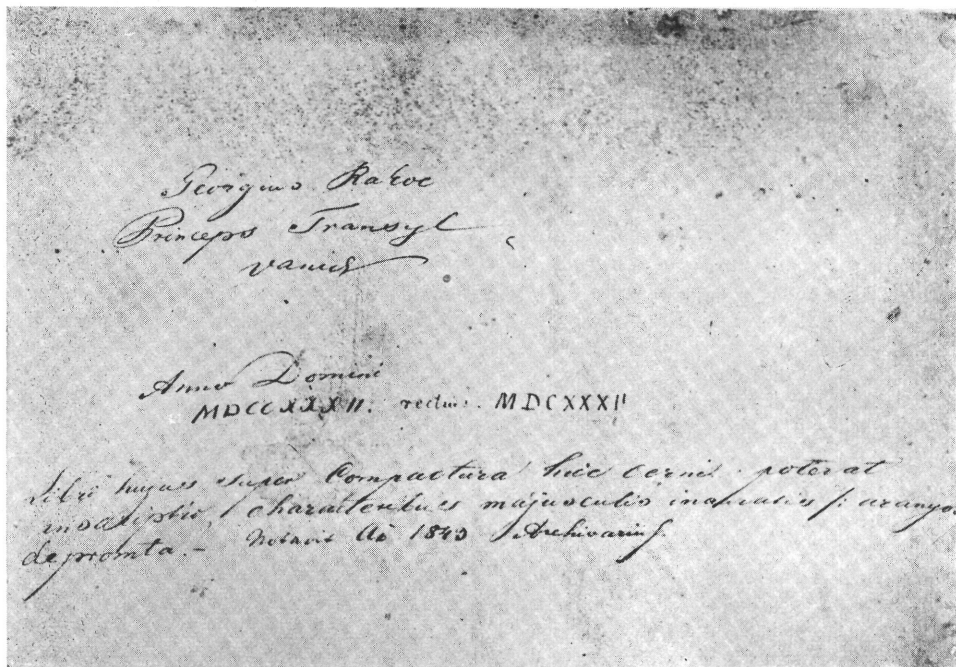 Georgius Rakoc
Princeps Transyl
vaniae
Anno Domini
MDCCXXXII. rectius. MDCXXXII
Libri hujus super Compactura haec cerni poterat
inscriptio, characteribus majusculis inauratis /: aranyos
depromta. – Notavit Aõ 1843 Archivarius